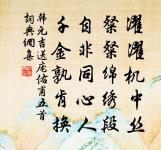 濯濯机中丝
粲粲绵绣段
自非同心人
千金孰肯换
韩元吉送庞佑甫五首
词典网集